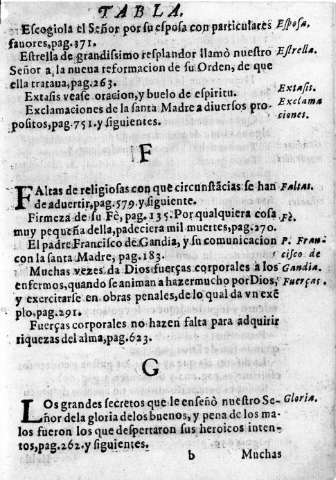 TABLA.
Escogiola el Señor por su esposa con particulares Esposa.
fauores, pag. 171.
Estrella de grandissimo resplandor llamò nuestro Estrella.
Señor a, la nueua reformacion de su Orden, de que
ella trataua, pag. 263.
Extasis vease oracion, y buelo de espiritu. Extasis.
Exclamaciones de la santa Madre a diuersos pro- Exclama
positos, pag. 751. y siguientes. ciones.
F
FAltas de religiosas con que circunstãcias se han Faltas.
de aduertir, pag. 579. y siguiente.
Firmeza de su Fè, pag. 135. Por qualquiera cosa Fè.
muy pequeña della, padeciera mil muertes, pag. 270.
El padre Francisco de Gandia, y su comunicacion P. Fran
con la santa Madre, pag. 183. cisco de
Muchas vezes da Dios fuerças corporales a los Gandia.
enfermos, quando se animan a hazer mucho por Dios, Fuerças.
y exercitarse en obras penales, de lo qual da vn exẽ
plo, pag. 291.
Fuerças corporales no hazen falta para adquirir
riquezas del alma, pag. 623.
G
LOs grandes secretos que le enseñò nuestro Se- Gloria.
ñor de la gloria de los buenos, y pena de los ma-
los fueron los que despertaron sus heroicos inten-
tos, pag. 262. y siguientes.
b Muchas